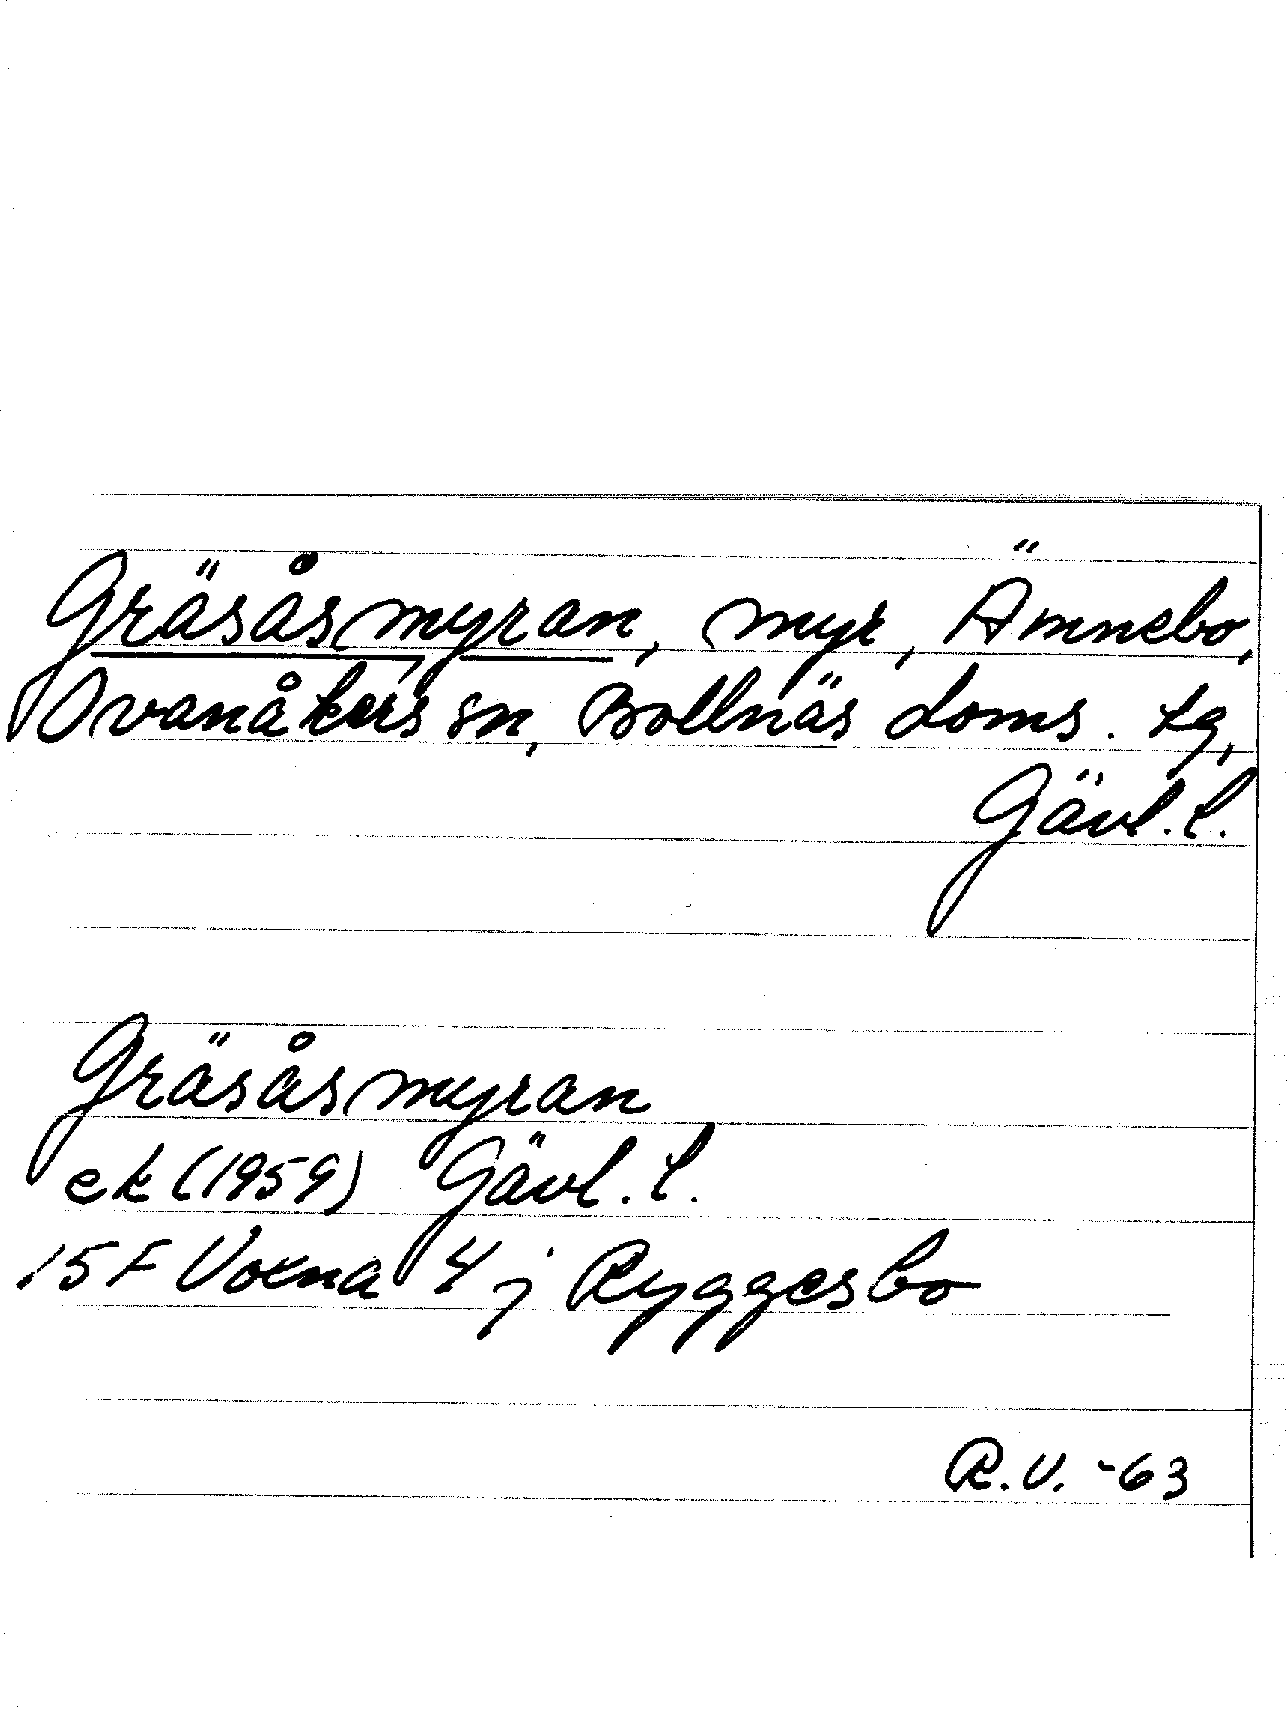 Gräsåsmyran, myr, Ämnebo,
Ovanåkers sn, Bollnäs doms. tg,
Gävl. l.
Gräsåsmyran
ek (1959) Gävl. l.
15 F Voxna 4 j Ryggesbo
R.V. -63